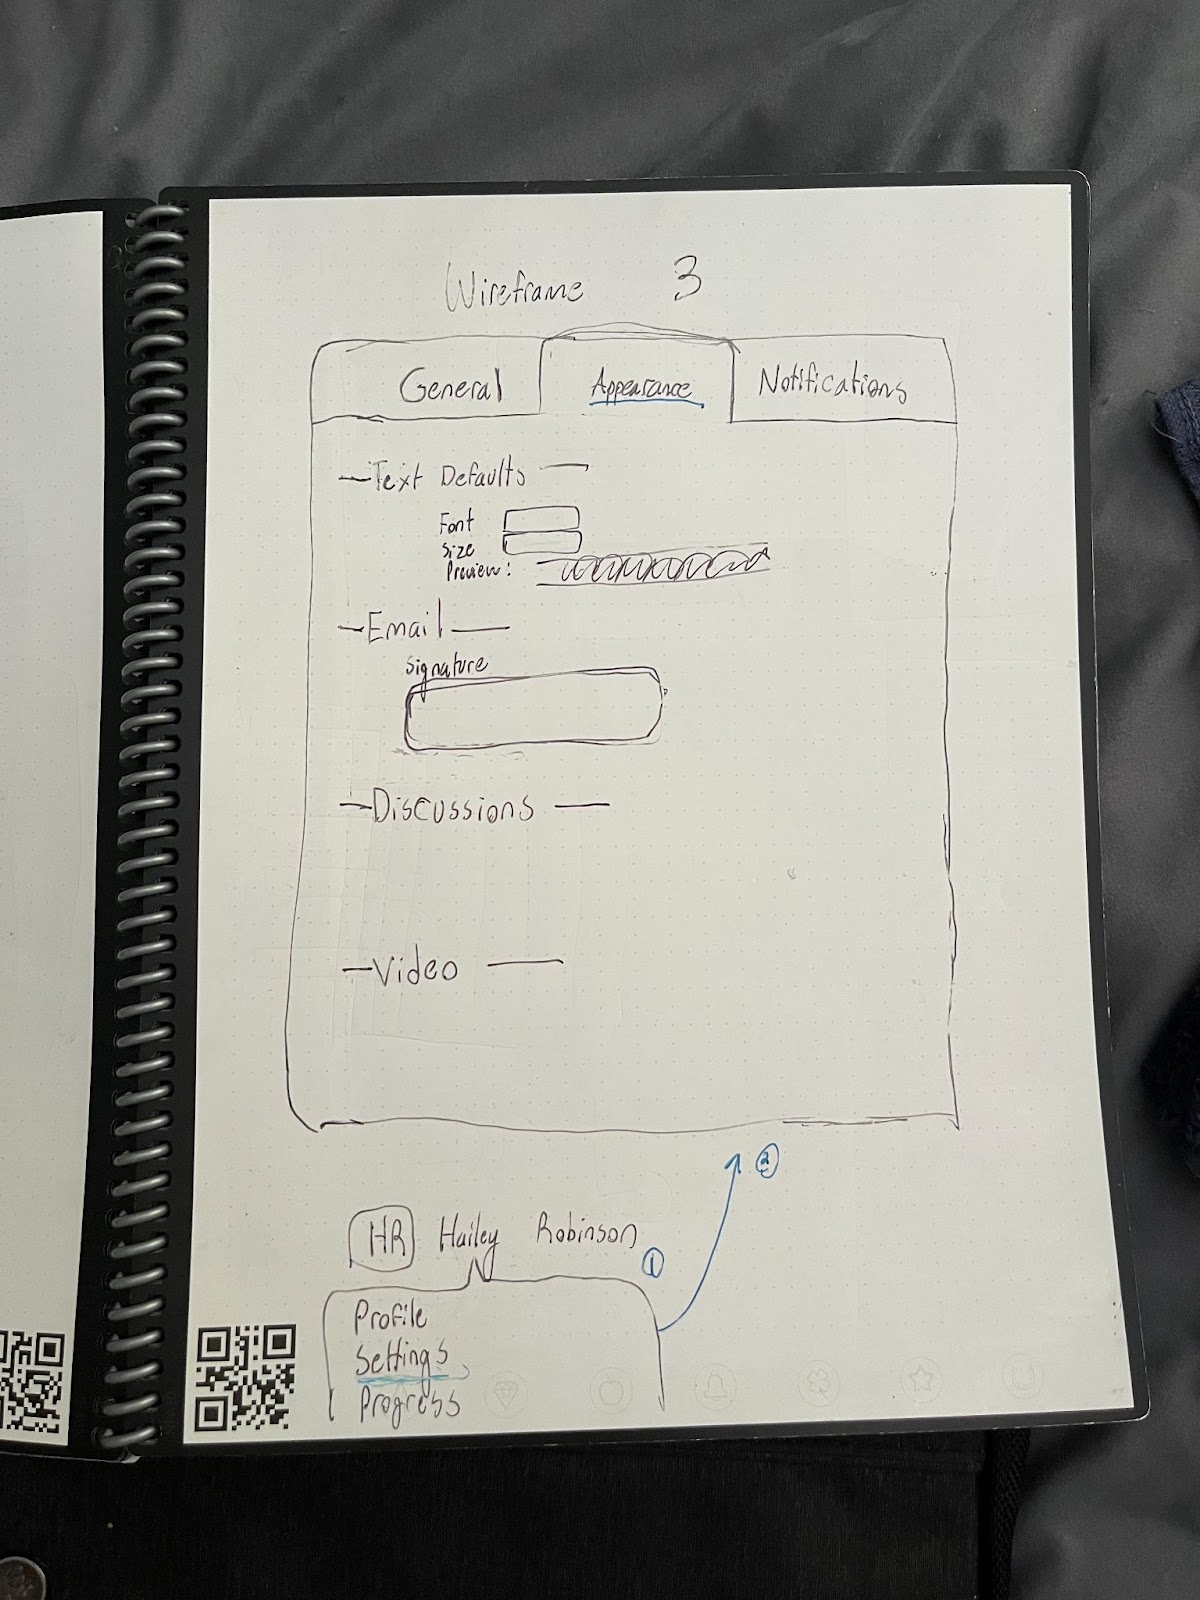 Wireframe 3
General Appearance Notifications
Text Defaults
Font
Size
Preview:
Email
Signature
Discussions
Video
2
HR Hailey Robinson
1
Profile
Settings
Progress